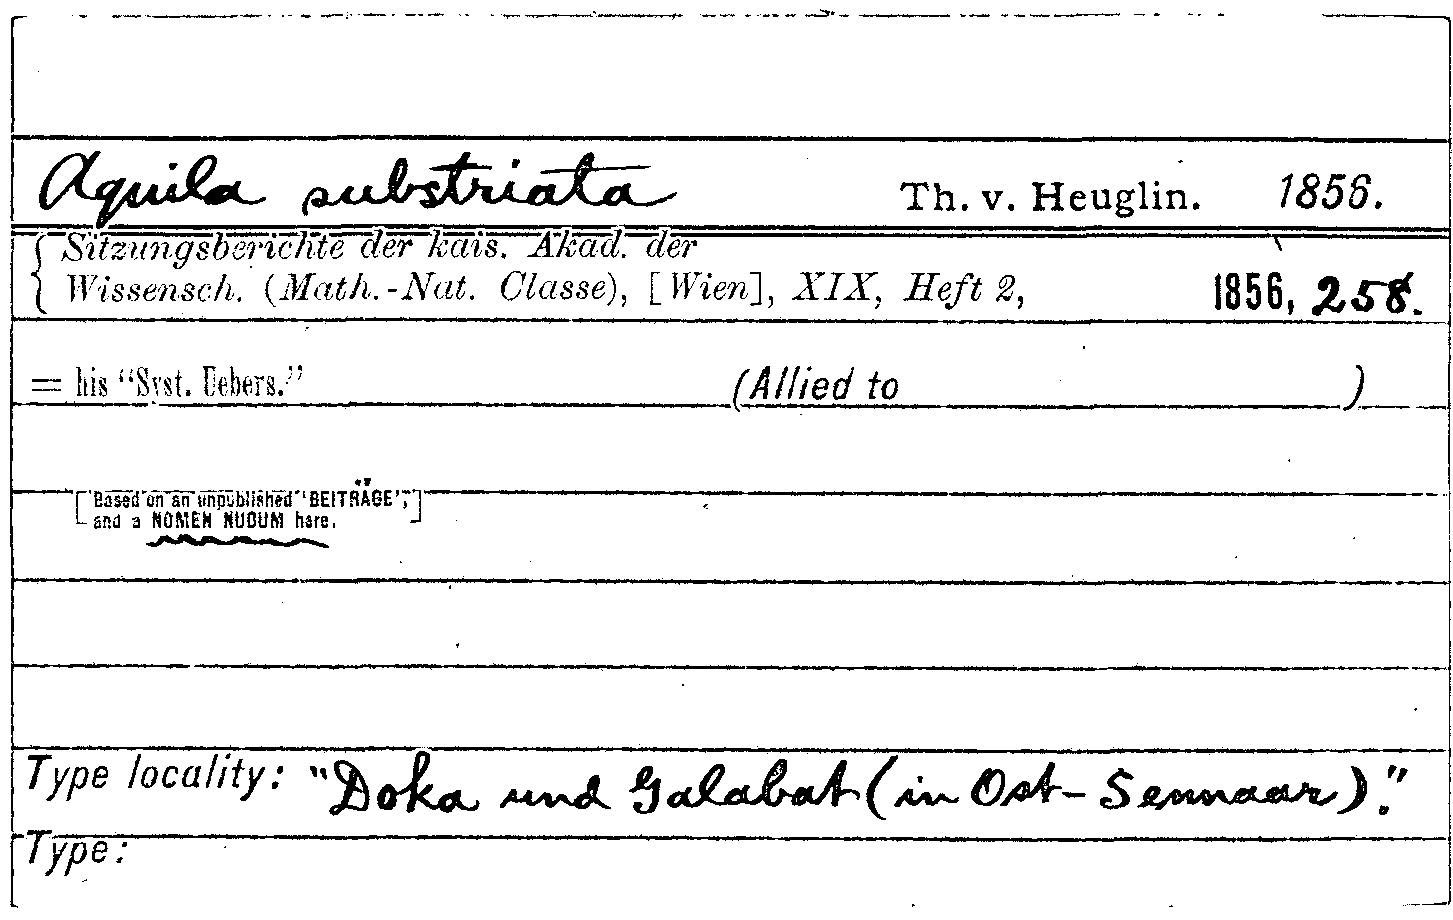 Aquila substriata Th. v. Heuglin. 1856.
Sitzungsberichte der kais. Akad. der
Wissensch. (Math.-Nat. Classe), [Wien], XIX, Heft 2, 1856, 258.
= his "Syst. Uebers." (Allied to )
[Based on an unpublished 'BEITRÄGE',
and a NOMEN NUDUM here.]
Type locality: "Doka und Galabat (in Ost-Sennaar)."
Type: